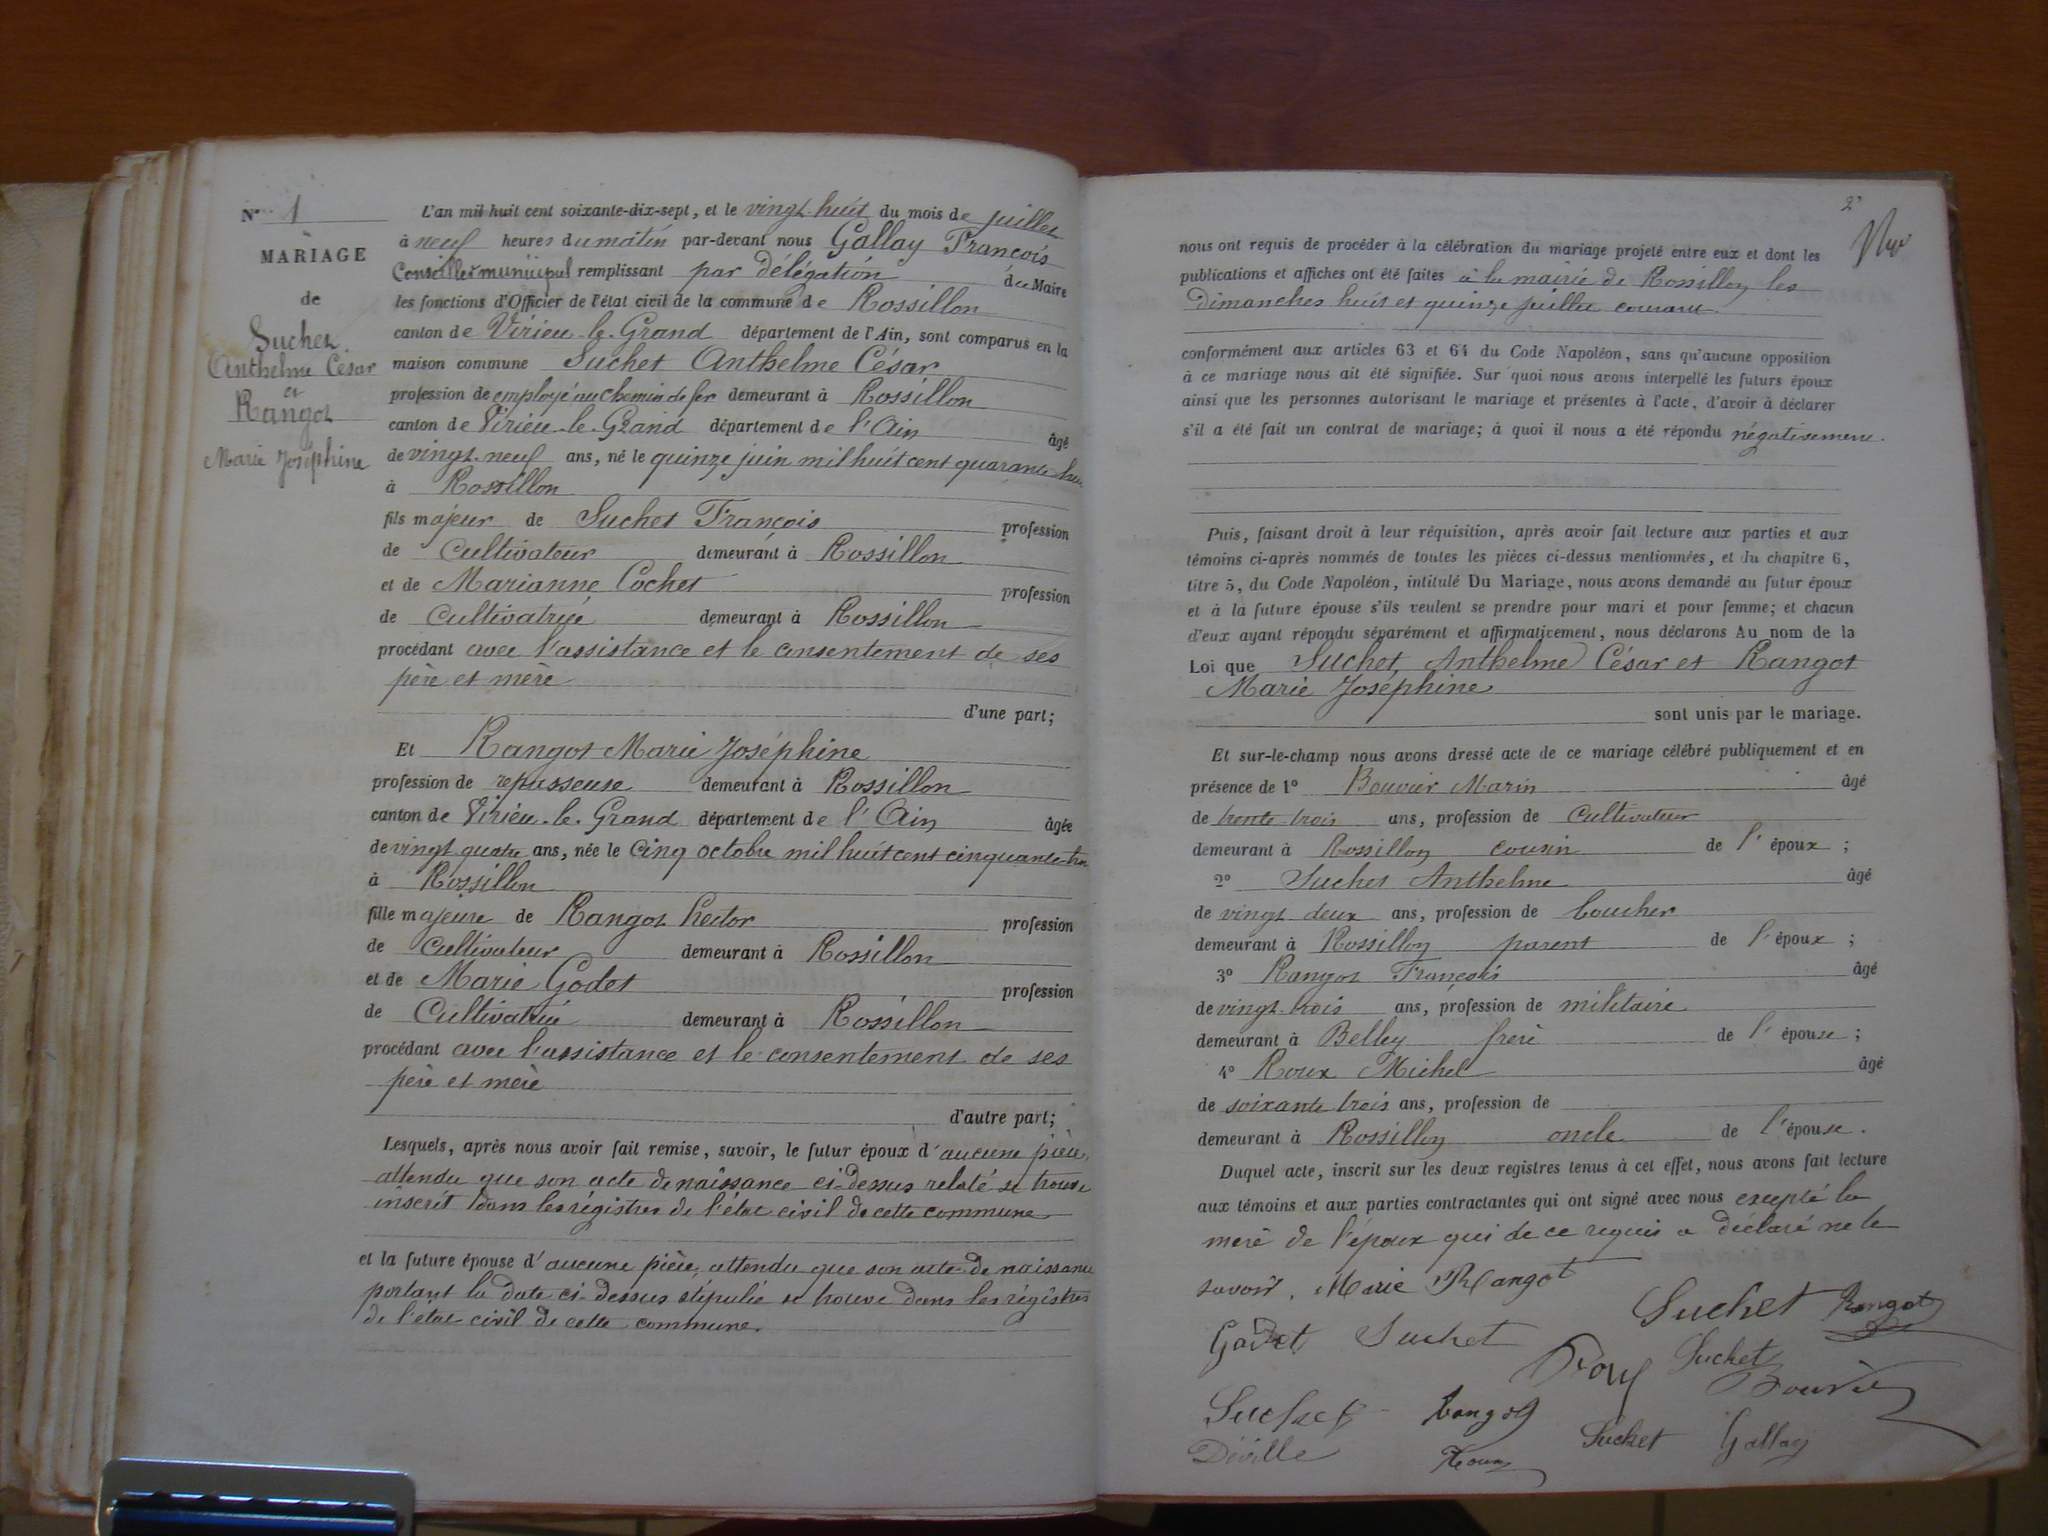 N° 1
MARIAGE
de
Suchet
Anthelme César
et
Rangot
Marie Joséphine
L'an mil huit cent soixante-dix-sept, et le vingt-huit du mois de juillet
à neuf heures du matin par-devant nous Gallay François
Conseiller municipal remplissant par délégation du Maire
les fonctions d'Officier de l'état civil de la commune de Rossillon
canton de Virieu-le-Grand département de l'Ain, sont comparus en la
maison commune Suchet Anthelme César
profession de employé au chemin de fer demeurant à Rossillon
canton de Virieu-le-Grand département de l'Ain âgé
de vingt-neuf ans, né le quinze juin mil huit cent quarante huit
à Rossillon
fils majeur de Suchet François profession
de Cultivateur demeurant à Rossillon
et de Marianne Cochet profession
de Cultivatrice demeurant à Rossillon
procédant avec l'assistance et le consentement de ses
père et mère
d'une part;
Et Rangot Marie Joséphine
profession de repasseuse demeurant à Rossillon
canton de Virieu-le-Grand département de l'Ain âgée
de vingt quatre ans, née le cinq octobre mil huit cent cinquante trois
à Rossillon
fille majeure de Rangot Hector profession
de Cultivateur demeurant à Rossillon
et de Marie Godet profession
de Cultivatrice demeurant à Rossillon
procédant avec l'assistance et le consentement de ses
père et mère
d'autre part;
Lesquels, après nous avoir fait remise, savoir, le futur époux d'aucune pièce,
attendu que son acte de naissance ci-dessus relaté se trouve
inscrit dans les régistres de l'état civil de cette commune
et la future épouse d'aucune pièce, attendu que son acte de naissance
portant la date ci-dessus stipulée se trouve dans les régistres
de l'état civil de cette commune.
2
nous ont requis de procéder à la célébration du mariage projeté entre eux et dont les
publications et affiches ont été faites à la mairie de Rossillon les
dimanches huit et quinze juillet courant
conformément aux articles 63 et 64 du Code Napoléon, sans qu'aucune opposition
à ce mariage nous ait été signifiée. Sur quoi nous avons interpellé les futurs époux
ainsi que les personnes autorisant le mariage et présentes à l'acte, d'avoir à déclarer
s'il a été fait un contrat de mariage; à quoi il nous a été répondu négativement.
Puis, faisant droit à leur réquisition, après avoir fait lecture aux parties et aux
témoins ci-après nommés de toutes les pièces ci-dessus mentionnées, et du chapitre 6,
titre 5, du Code Napoléon, intitulé Du Mariage, nous avons demandé au futur époux
et à la future épouse s'ils veulent se prendre pour mari et pour femme; et chacun
d'eux ayant répondu séparément et affirmativement, nous déclarons Au nom de la
Loi que Suchet Anthelme César et Rangot
Marie Joséphine
sont unis par le mariage.
Et sur-le-champ nous avons dressé acte de ce mariage célébré publiquement et en
présence de 1° Bouvier Marin âgé
de trente trois ans, profession de Cultivateur
demeurant à Rossillon cousin de l'époux ;
2° Suchet Anthelme âgé
de vingt deux ans, profession de boucher
demeurant à Rossillon parent de l'époux ;
3° Rangot François âgé
de vingt trois ans, profession de militaire
demeurant à Belley frère de l'épouse ;
4° Roux Michel âgé
de soixante trois ans, profession de
demeurant à Rossillon oncle de l'épouse.
Duquel acte, inscrit sur les deux registres tenus à cet effet, nous avons fait lecture
aux témoins et aux parties contractantes qui ont signé avec nous excepté la
mère de l'époux qui de ce requis a déclaré ne le
savoir. Marie Rangot
Suchet Rangot
Godet Suchet
Suchet
Bouvier
Suchet Rangot Suchet Gallay
Déville Roux